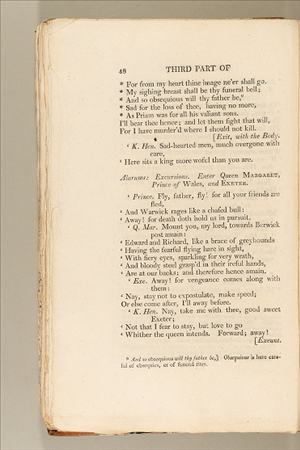 48 THIRD PART OF
* For from my heart thine image ne'er shall go.
* My sighing breast shall be thy funeral bell;
* And so obsequious will thy father be,⁸
* Sad for the loss of thee, having no more,
* As Priam was for all his valiant sons.
I'll bear thee hence; and let them fight that will,
For I have murder'd where I should not kill.
[Exit, with the Body.
‘ K. Hen. Sad-hearted men, much overgone with
care,
‘ Here sits a king more woful than you are.
Alarums: Excursions. Enter Queen MARGARET,
Prince of Wales, and EXETER.
‘ Prince. Fly, father, fly! for all your friends are
fled,
‘ And Warwick rages like a chafed bull:
‘ Away! for death doth hold us in pursuit.
‘ Q. Mar. Mount you, my lord, towards Berwick
post amain:
‘ Edward and Richard, like a brace of greyhounds
‘ Having the fearful flying hare in sight,
‘ With fiery eyes, sparkling for very wrath,
‘ And bloody steel grasp'd in their ireful hands,
‘ Are at our backs; and therefore hence amain.
‘ Exe. Away! for vengeance comes along with
them:
‘ Nay, stay not to expostulate, make speed;
Or else come after, I'll away before.
‘ K. Hen. Nay, take me with thee, good sweet
Exeter;
‘ Not that I fear to stay, but love to go
‘ Whither the queen intends. Forward; away!
[Exeunt.
⁸ And so obsequious will thy father be,] Obsequious is here care-
ful of obsequies, or of funeral rites.